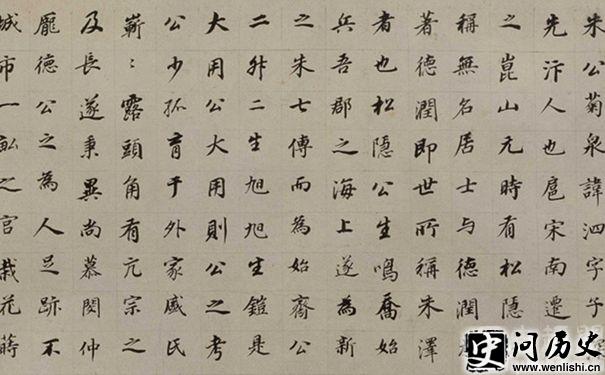 朱公菊泉諱泗字子
先汴人也扈宋南遷
之崑山元時有松隱
稱無名居士与德潤
著德潤即世所稱朱澤
者也松隱公生鳴喬始
兵吾郡之海上遂為新
之朱七傳而為始齋公
二外二生旭旭生鎧是
大用公大用則公之考
公少孤育于外家氏
嶄〻露頭角有亢宗之
及長遂秉異尚慕閔仲
龐德公之為人足跡不
城市一畝之宮栽花蒔
史 问历史
www.wenlishi.cn